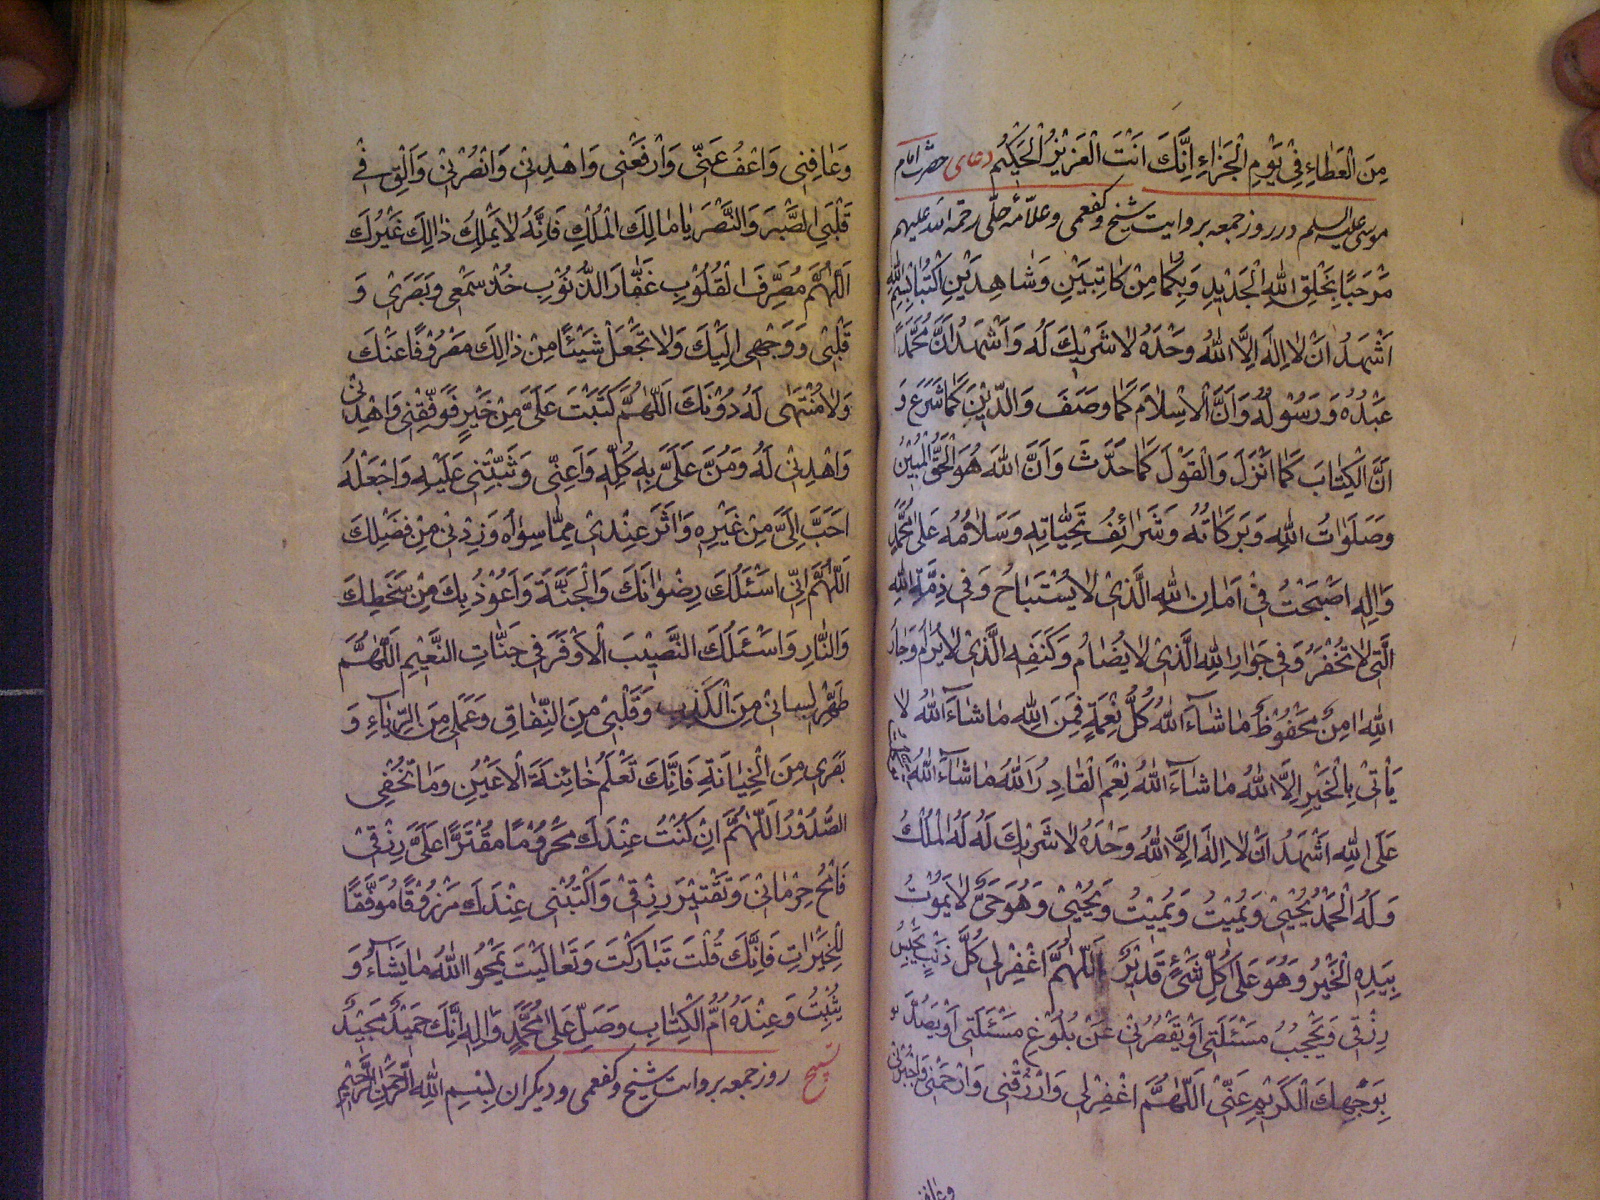 مِنَ الْعَطَاءِ فِيْ يَوْمِ الْجَزَاءِ اِنَّكَ اَنْتَ الْعَزِيْزُ الْحَكِيْمُ دعای حضرت امام
موسی علیه السلم در روز جمعه بروایت شیخ و کفعمی و علامه حلّی رحمة الله علیهم
مَرْحَبًا بِخَلْقِ اللهِ الْجَدِيْدِ وَبِكُمَا مِنْ كَاتِبَيْنِ وَشَاهِدَيْنِ اُكْتُبَا بِسْمِ اللهِ
اَشْهَدُ اَنْ لَا اِلٰهَ اِلَّا اللهُ وَحْدَهُ لَا شَرِيْكَ لَهُ وَاَشْهَدُ اَنَّ مُحَمَّدًا
عَبْدُهُ وَرَسُوْلُهُ وَاَنَّ الْاِسْلَامَ كَمَا وَصَفَ وَالدِّيْنَ كَمَا شَرَعَ وَ
اَنَّ الْكِتَابَ كَمَا اَنْزَلَ وَالْقَوْلَ كَمَا حَدَّثَ وَاَنَّ اللهَ هُوَ الْحَقُّ الْمُبِيْنُ
وَصَلَوَاتُ اللهِ وَبَرَكَاتُهُ وَشَرَائِفُ تَحِيَّاتِهِ وَسَلَامُهُ عَلَى مُحَمَّدٍ
وَاٰلِهِ اَصْبَحْتُ فِيْ اَمَانِ اللهِ الَّذِيْ لَا يُسْتَبَاحُ وَفِي ذِمَّةِ اللهِ
الَّتِي لَا تُخْفَرُ وَفِي جَوَارِ اللهِ الَّذِيْ لَا يُضَامُ وَكَنَفِهِ الَّذِيْ لَا يُرَامُ وَجَارُ
اللهِ اٰمِنٌ مَحْفُوْظٌ مَا شَاءَ اللهُ كُلُّ نِعْمَةٍ فَمِنَ اللهِ مَا شَاءَ اللهُ لَا
يَأْتِيْ بِالْخَيْرِ اِلَّا اللهُ مَا شَاءَ اللهُ نِعْمَ الْقَادِرُ اللهُ مَا شَاءَ اللهُ
عَلَى اللهِ اَشْهَدُ اَنْ لَا اِلٰهَ اِلَّا اللهُ وَحْدَهُ لَا شَرِيْكَ لَهُ لَهُ الْمُلْكُ
وَلَهُ الْحَمْدُ يُحْيِيْ وَيُمِيْتُ وَيُمِيْتُ وَيُحْيِيْ وَهُوَ حَيٌّ لَا يَمُوْتُ
بِيَدِهِ الْخَيْرُ وَهُوَ عَلَى كُلِّ شَيْءٍ قَدِيْرٌ اَللّٰهُمَّ اغْفِرْ لِي كُلَّ ذَنْبٍ يَحْبِسُ
رِزْقِي وَيَحْجُبُ مَسْئَلَتِي اَوْ يَقْصُرُنِيْ عَنْ بُلُوْغِ مَسْئَلَتِي اَوْ يَصُدُّ
بِوَجْهِكَ الْكَرِيْمِ عَنِّيْ اَللّٰهُمَّ اغْفِرْ لِي وَارْزُقْنِي وَارْحَمْنِي وَاجْبُرْنِيْ
وعافنی
وَعَافِنِي وَاعْفُ عَنِّي وَارْفَعْنِي وَاهْدِنِيْ وَانْصُرْنِيْ وَاَلْقِ فِيْ
قَلْبِيَ الصَّبْرَ وَالنَّصْرَ يَا مَالِكَ الْمُلْكِ فَاِنَّهُ لَا يَمْلِكُ ذَالِكَ غَيْرُكَ
اَللّٰهُمَّ مُصَرِّفَ الْقُلُوْبِ غَفَّارَ الذُّنُوْبِ خُذْ سَمْعِي وَبَصَرِيْ وَ
قَلْبِيْ وَوَجْهِي اِلَيْكَ وَلَا تَجْعَلْ شَيْئًا مِنْ ذَالِكَ مَصْرُوْفًا عَنْكَ
وَلَا مُنْتَهَى لَهُ دُوْنَكَ اَللّٰهُمَّ كَتَبْتَ عَلَيَّ مِنْ خَيْرٍ فَوَفِّقْنِي وَاهْدِنِيْ
وَاهْدِنِيْ لَهُ وَمُنَّ عَلَيَّ بِهِ كُلِّهِ وَاَعِنِّي وَثَبِّتْنِي عَلَيْهِ وَاجْعَلْهُ
اَحَبَّ اِلَيَّ مِنْ غَيْرِهِ وَاٰثَرَ عِنْدِيْ مِمَّا سِوَاهُ وَزِدْنِيْ مِنْ فَضْلِكَ
اَللّٰهُمَّ اِنِّي اَسْئَلُكَ رِضْوَانَكَ وَالْجَنَّةَ وَاَعُوْذُ بِكَ مِنْ سَخَطِكَ
وَالنَّارِ وَاَسْئَلُكَ النَّصِيْبَ الْاَوْفَرَ فِي جَنَّاتِ النَّعِيْمِ اَللّٰهُمَّ
طَهِّرْ لِسَانِيْ مِنَ الْكَذِبِ وَقَلْبِيْ مِنَ النِّفَاقِ وَعَمَلِي مِنَ الرِّيَاءِ وَ
بَصَرِي مِنَ الْخِيَانَةِ فَاِنَّكَ تَعْلَمُ خَائِنَةَ الْاَعْيُنِ وَمَا تُخْفِي
الصُّدُوْرُ اَللّٰهُمَّ اِنْ كُنْتُ عِنْدَكَ مَحْرُوْمًا مُقْتَرًّا عَلَيَّ رِزْقِيْ
فَامْحُ حِرْمَانِيْ وَتَقْتِيْرَ رِزْقِيْ وَاكْتُبْنِي عِنْدَكَ مَرْزُوْقًا مُوَفَّقًا
لِلْخَيْرَاتِ فَاِنَّكَ قُلْتَ تَبَارَكْتَ وَتَعَالَيْتَ يَمْحُوا اللهُ مَا يَشَاءُ وَ
يُثْبِتُ وَعِنْدَهُ اُمُّ الْكِتَابِ وَصَلِّ عَلَى مُحَمَّدٍ وَاٰلِهِ اِنَّكَ حَمِيْدٌ مَجِيْدٌ
تسبیح روز جمعه بروایت شیخ و کفعمی و دیکران بِسْمِ اللهِ الرَّحْمٰنِ الرَّحِيْمِ